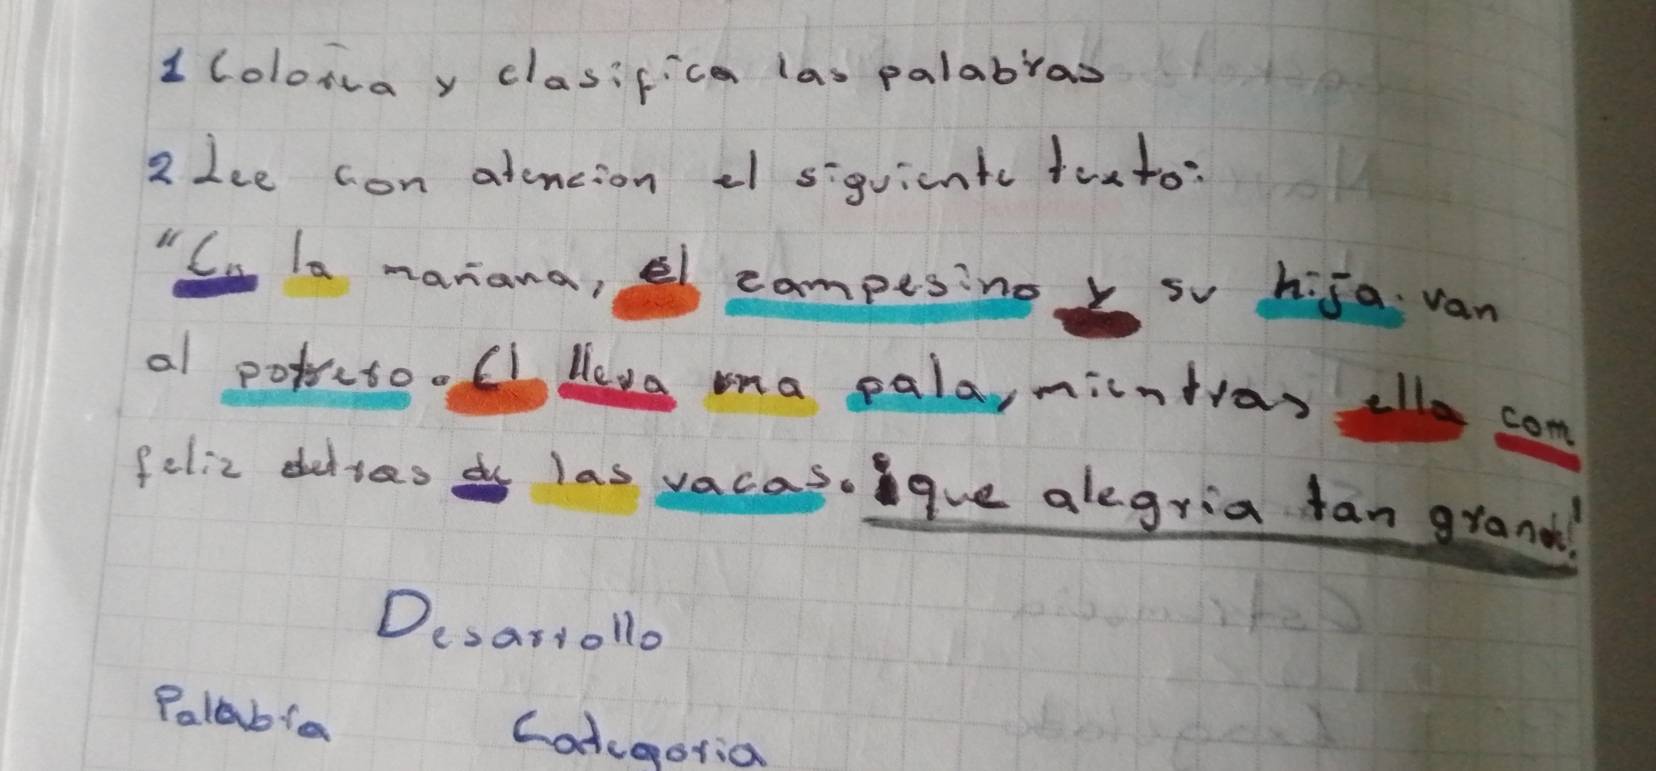 1 Colorea y clasifica las palabras
2 Lee con atencion el siguiente texto:
"En la mañana, el campesino y su hija. van
al potrero. El lleva una pala, mientras ella com
feliz detras de las vacas. ¡que alegria tan grande!
Desarrollo
Palabra Categoria